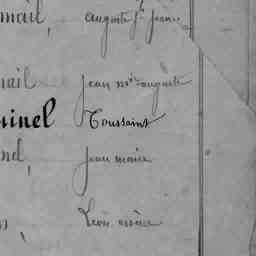 mail, auguste fs jean
mail jean mie auguste
uinel Toussaint
nel, jean marie
Léon